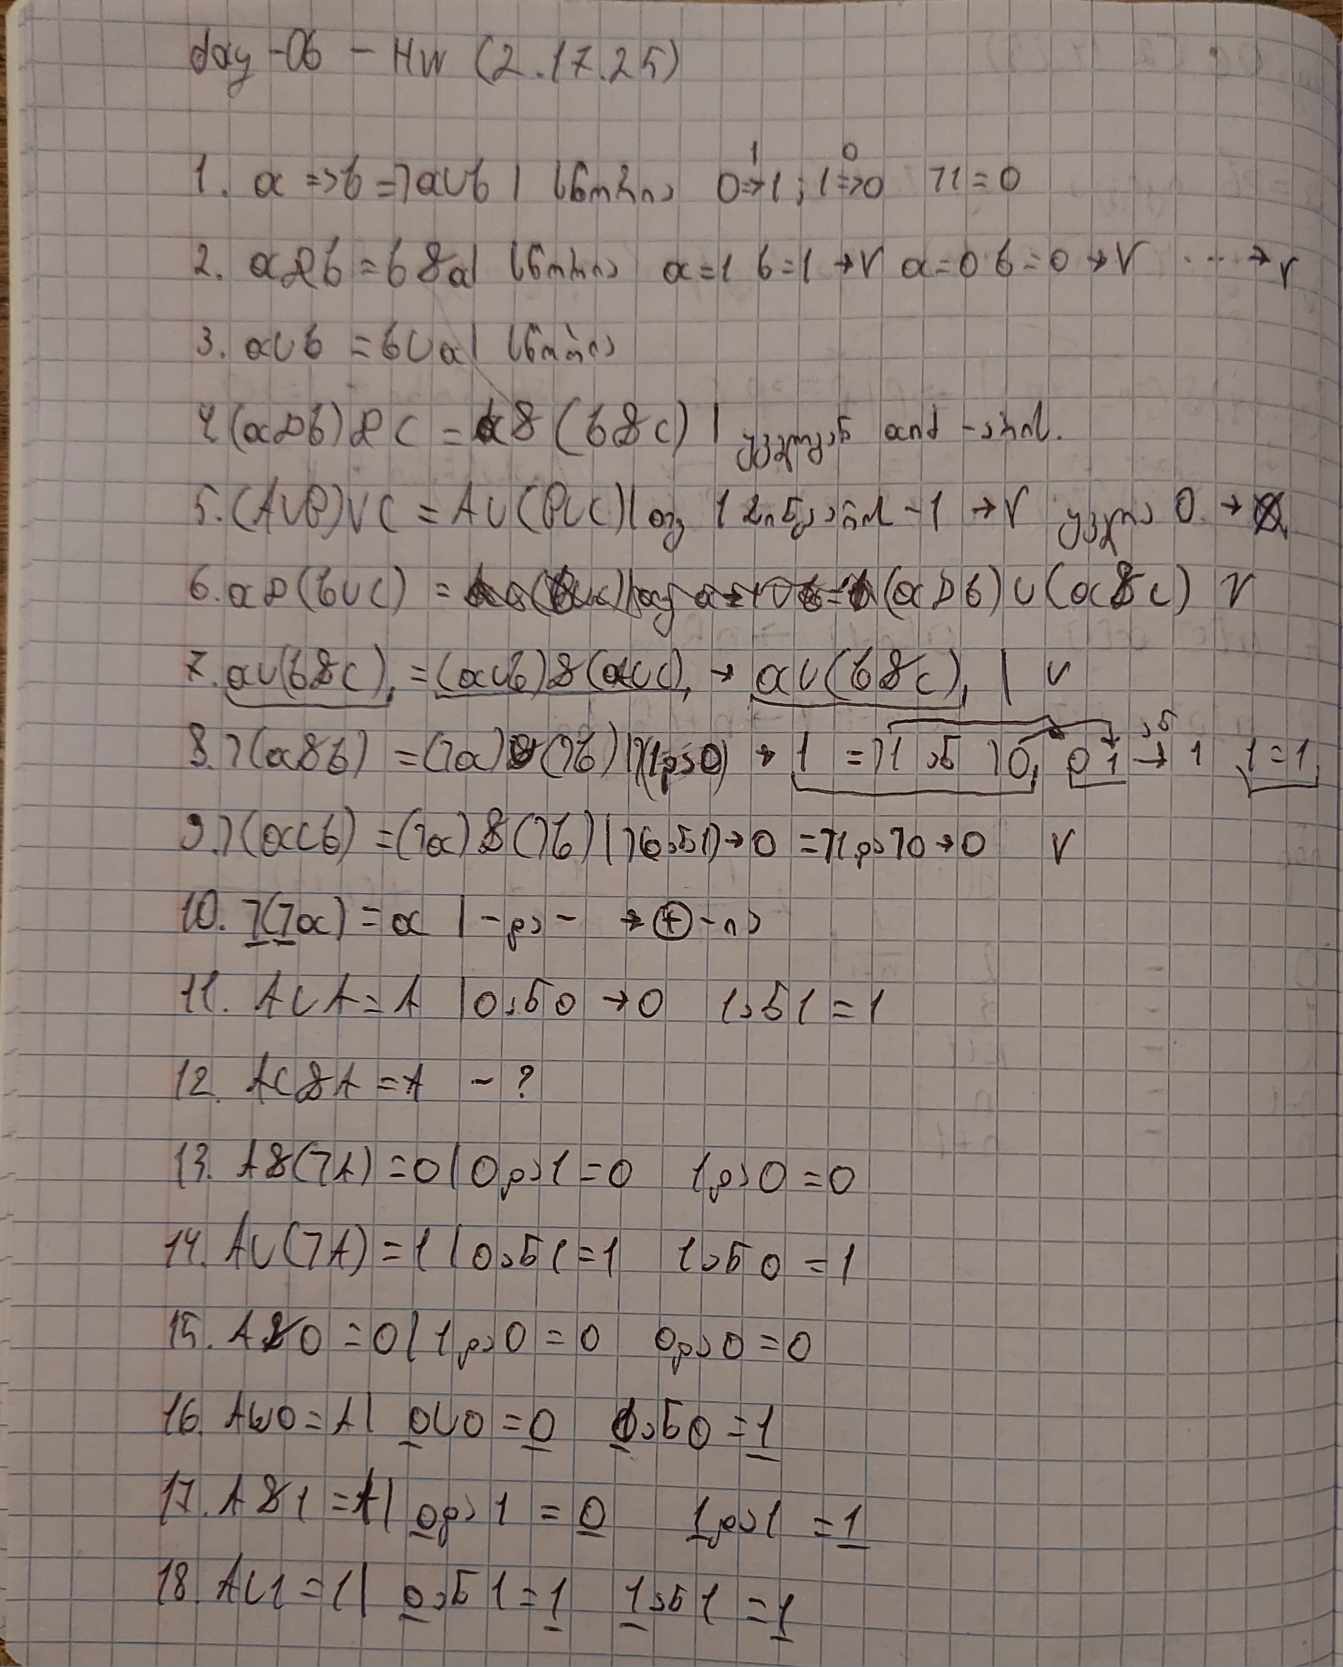 day-06 - HW (2.17.25)
1. a => b = ¬a∪b | სწორია 0=>1 1; 1=>0 0 ¬1 = 0
2. a&b = b&a | სწორია a=1 b=1 → V a=0 b=0 → V ... → V
3. a∪b = b∪a | სწორია
4. (a&b)&c = a&(b&c) | ყველგან and -არის.
5. (A∪B)∪C = A∪(B∪C) | თუ 1 → V ყველა 0 →
6. a&(b∪c) = (a&b)∪(a&c) V
7. a∪(b&c), = (a∪b)&(a∪c), → a∪(b&c), | V
8. ¬(a&b) = (¬a)∪(¬b) | ¬(1და0) → 1 = ¬1 ან ¬0, 0 ან 1 → 1 1=1
9. ¬(a∪b) = (¬a)&(¬b) | ¬(0ან1) → 0 = ¬1 და ¬0 → 0 V
10. ¬(¬a) = a | - და - → ⊕-ია
11. A∪A = A | 0ან0 → 0 1ან1 = 1
12. A&A = A - ?
13. A&(¬A) = 0 | 0და1 = 0 1და0 = 0
14. A∪(¬A) = 1 | 0ან1 = 1 1ან0 = 1
15. A&0 = 0 | 1და0 = 0 0და0 = 0
16. A∪0 = A | 0∪0 = 0 1ან0 = 1
17. A&1 = A | 0და1 = 0 1და1 = 1
18. A∪1 = 1 | 0ან1 = 1 1ან1 = 1